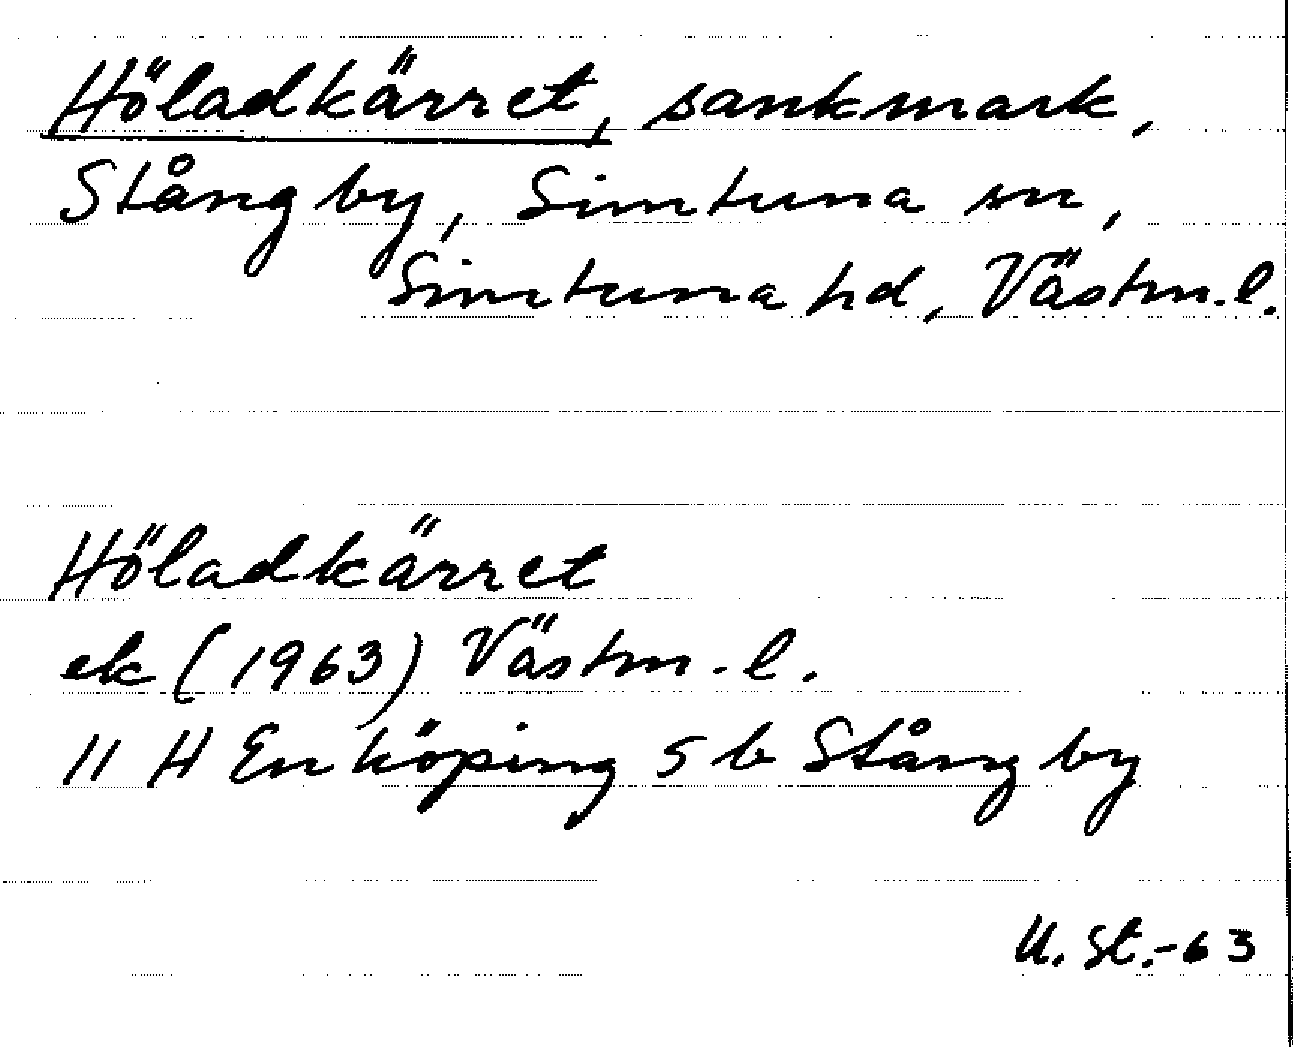 Höladkärret, sankmark,
Stångby, Simtuna sn,
Simtuna hd, Västm.l.
Höladkärret
ek (1963) Västm.l.
11 H Enköping 5 b Stångby
U. St.-63